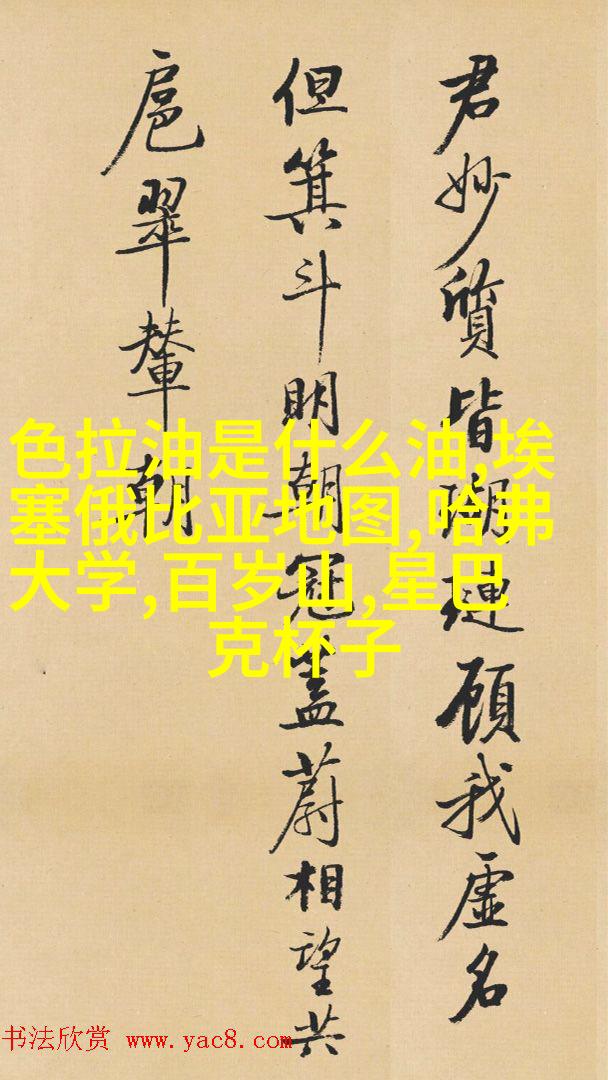 君妙质皆瑚琏顾我虚名
但箕斗明朝冠盖蔚相望共
扈翠辇朝
色拉油是什么油,埃
塞俄比亚地图,哈弗
大学,百岁山,星巴
克杯子
书法欣赏 www.yac8.com